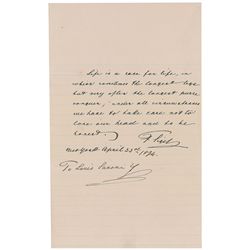 Life is a race for life, in
which sometimes the longest legs
but very often the longest purse
conquer; under all circumstances
we have to take care not to
lose our head and to be
honest.
New York April 23rd, 1894.
To Louis